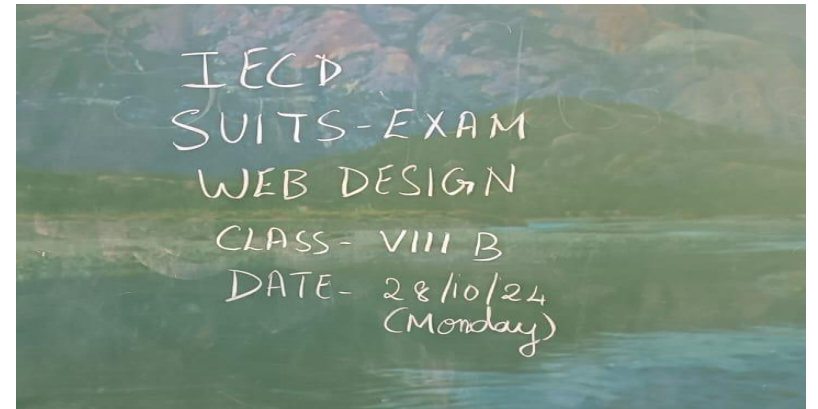 IECD
SUITS-EXAM
WEB DESIGN
CLASS- VIII B
DATE- 28/10/24
(Monday)